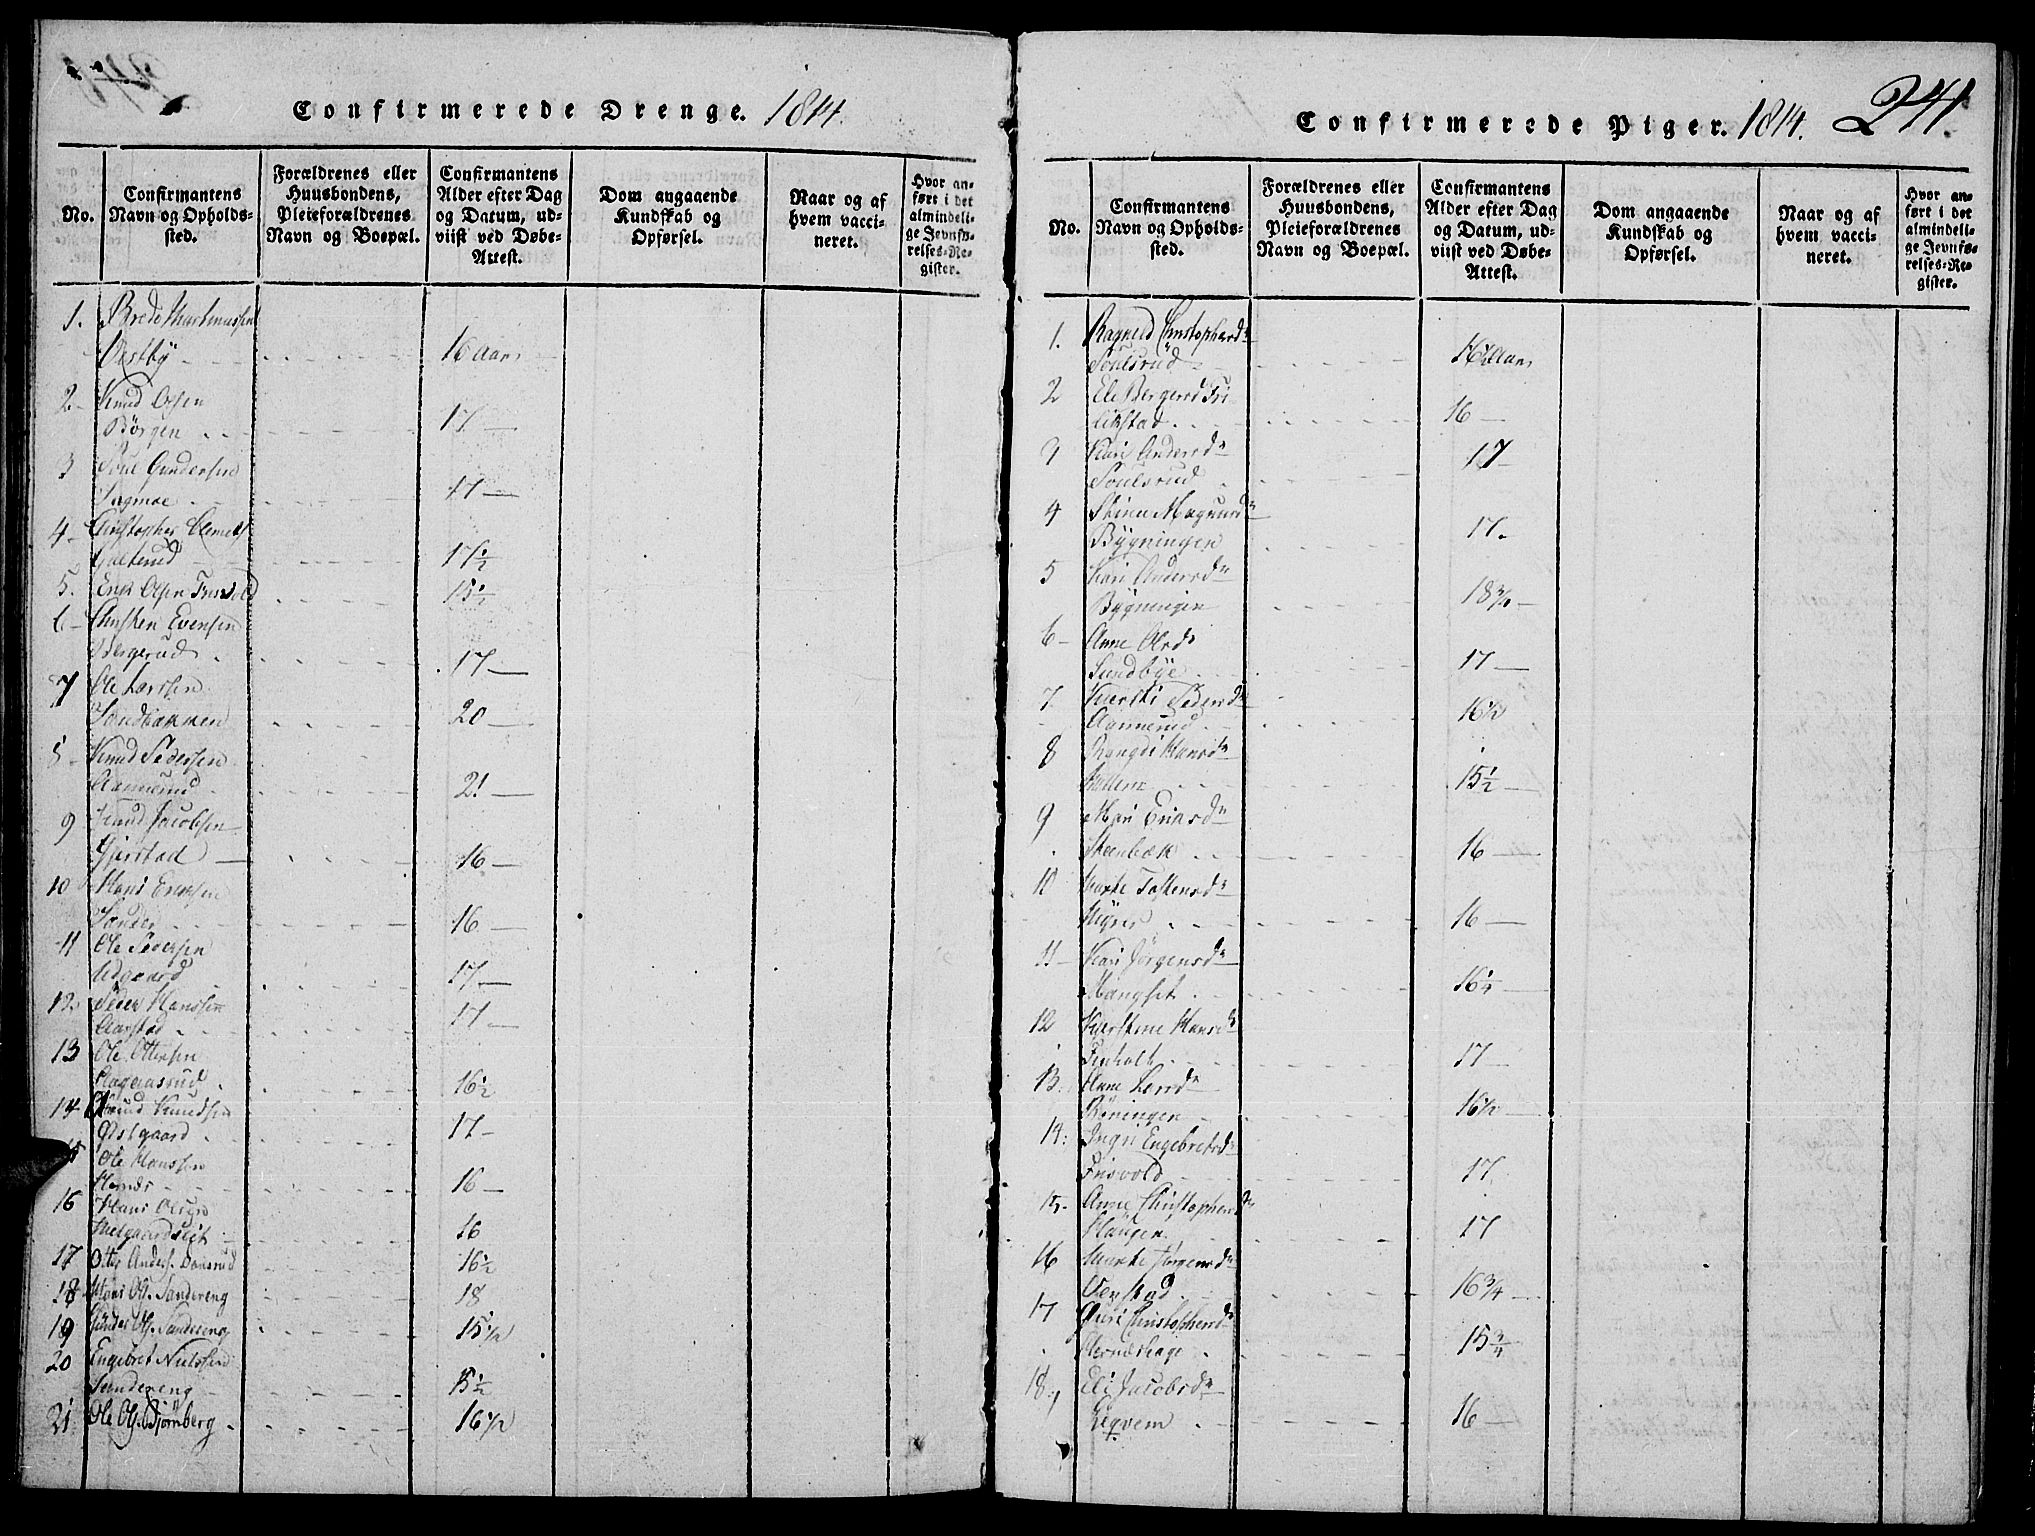 Confirmerede Drenge. 1814.
No.
Confirmantens Navn og Opholds-sted.
Forældrenes eller Huusbondens, Pleieforældrenes Navn og Boepæl.
Confirmantens Alder efter Dag og Datum, ud-viist ved Døbe-Attest.
Dom angaaende Kundskab og Opførsel.
Naar og af hvem vacci-neret.
Hvor an-ført i det almindeli-ge Jevnfø-relses-Re-gister.
1. Brede Martinussen
Vestby 16 Aar
2. Knud Olsen
Børgen 17
3 Poul Gundersen
Sagmoe 17
4 Christopher Clemets
Galterud 17 1/2
5. Engb Olsen Frisvold 15 1/2
6 Christen Evensen
Bergerud 17
7 Ole Larssen
Sandbakken 20
8 Knud Pedersen
Aamerud 21
9 Knud Jacobsen
Gjerstad 16
10 Hans Ericksen
Sander 16
11 Ole Pedersen
Udgaard 17
12. Peder Hanssen
Aarstad 17
13 Ole Ottersen
Haganasrud 16 1/2
14 Knud Knudsen
Østgaard 17
15 Ole Hanssen
Hernes 16
16 Hans Olsen
Melgaardseit 16
17 Otter Anders. Dansrud 16 1/2
18 Hans Ols. Sandereng 18
19 Gunder Ols. Sandereng 15 1/2
20 Engebret Nielssen
Sandereng 15 1/2
21 Ole Ols. Bjørnberg 16 1/2
Confirmerede Piger. 1814. 241.
No.
Confirmantens Navn og Opholds-sted.
Forældrenes eller Huusbondens, Pleieforældrenes Navn og Boepæl.
Confirmantens Alder efter Dag og Datum, ud-viist ved Døbe-Attest.
Dom angaaende Kundskab og Opførsel.
Naar og af hvem vacci-neret.
Hvor an-ført i det almindeli-ge Jevnfø-relses-Re-gister.
1. Ragneld Christophersdr
Poulsrud 16 1/2 Aar
2 Ele Bergersd Fri
likstad 16
3 Kari Andersdr
Poulsrud 17
4 Stine Magnusdr
Bygningen 17
5 Kari Andersdr
Bygningen 18 3/4
6 Anne Olsdr
Sundbye 17
7. Kiersti Pedersdr
Aamerud 16 1/2
8 Rangdi Hansdr
15 1/2
9 Mari Ericksdr
Steenbæk 16
10 Marte Tostensdr
16
11 Kari Jørgensdr
Mangset 16 1/4
12 Kierstine Hansdr
Fenholt 17
13. Anne Larsdr
Røningen 16 1/2
14. Ingri Engebretsdr
Frisvold 17
15. Anne Christophersdr
Haugen 17
16 Marte Jørgensdr
16 3/4
17 Guri Christophersdr
Hernæshage 15 3/4
18. Eli Jacobsdr
Leqvem 16